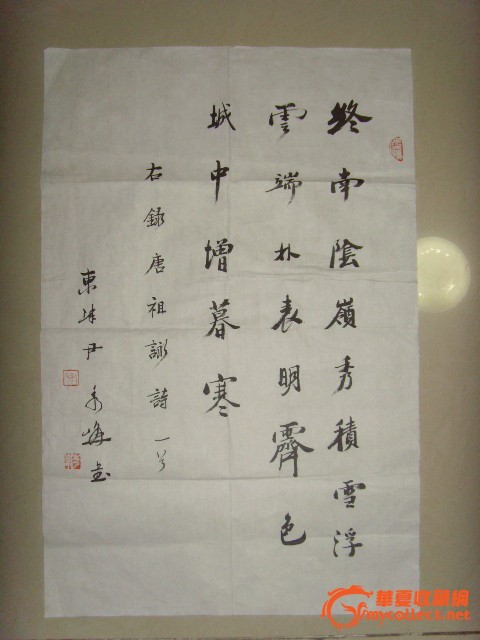 終南陰嶺秀積雪浮
雲端朴表明霽色
城中增暮寒
右錄唐祖詠詩一首
東尹秀梅書
華夏收藏網
mycollect.net